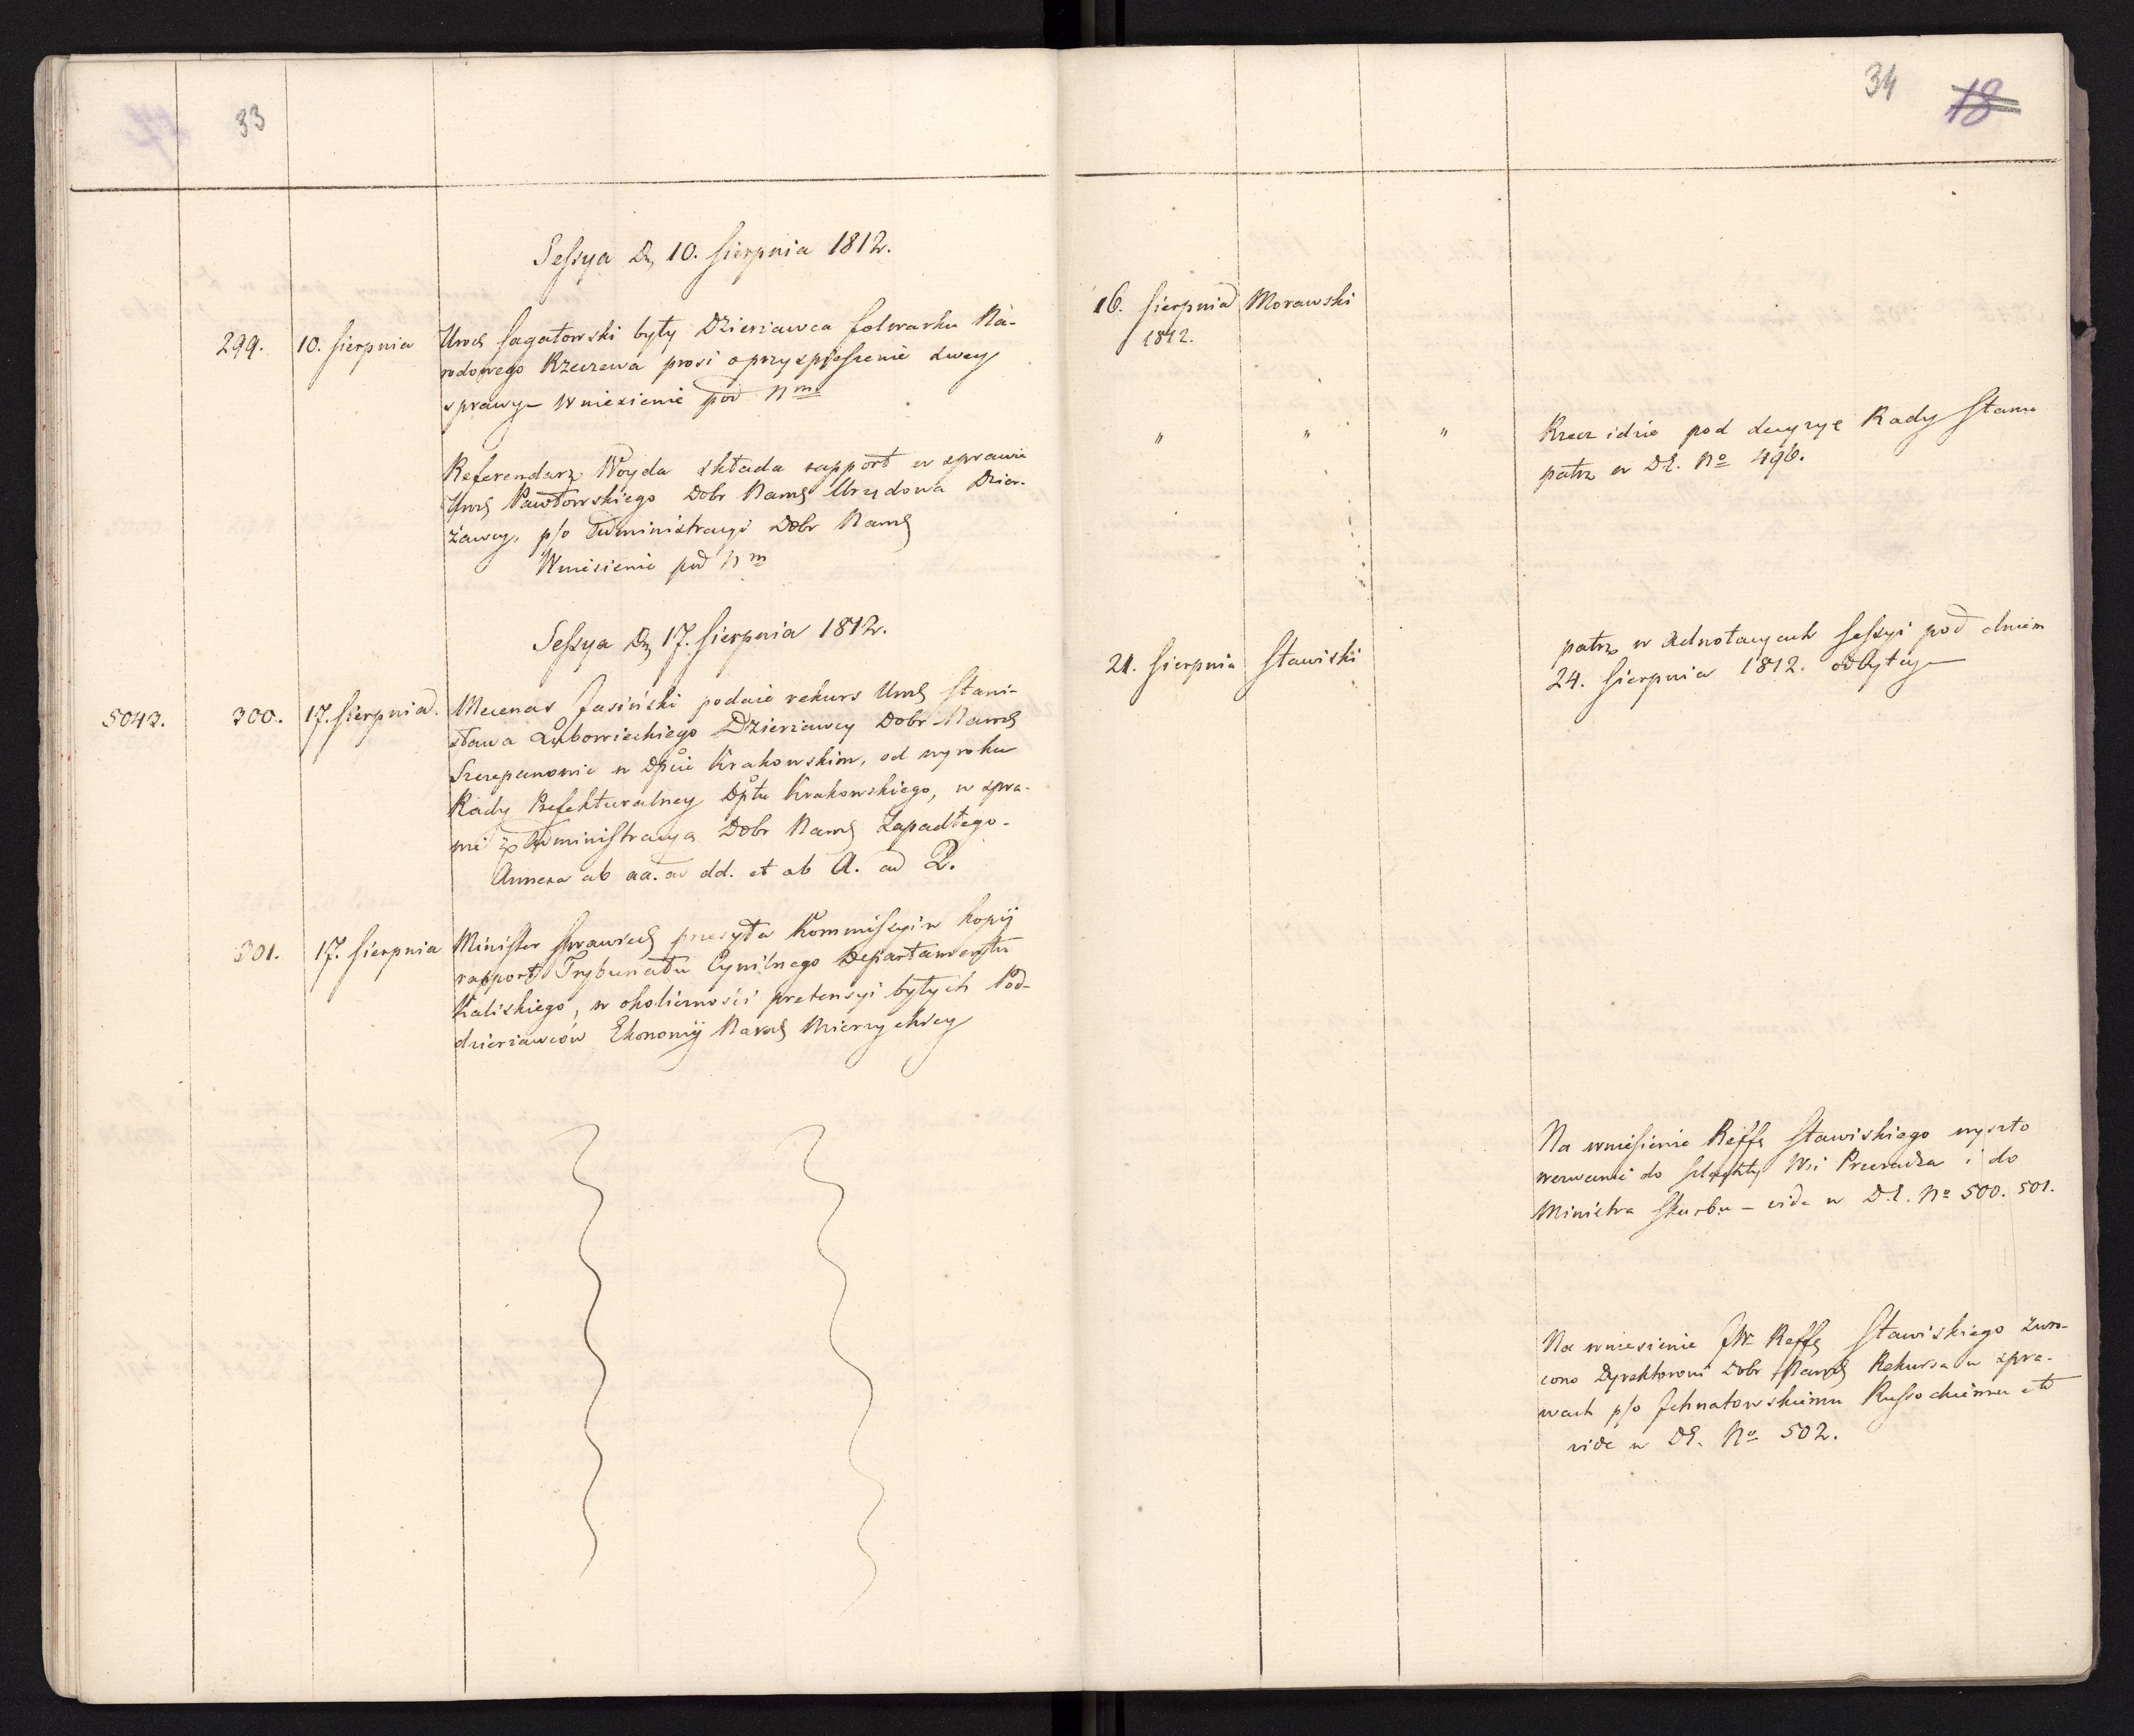 33
Sessya D. 10. Sierpnia 1812.
299. 10. Sierpnia Urod. Sagatowski były Dzierżawca folwarku Na-
rodowego Rzeczewa prosi o przyspieszenie swey
sprawy – Wniesienie pod Nm
Referendarz Woyda składa rapport w sprawie
Urod. Pawłowskiego Dobr Narod. Urzędowa Dzier-
żawcy, p/o Administracyi Dobr Narod.
Wniesienie pod Nm
Sessya D. 17. Sierpnia 1812.
5043. 300. 17. Sierpnia. Mecenas Jasiński podaie rekurs Urod. Stani-
sława Luboniechiego Dzierżawcy Dobr Narod.
Szczepanowic w Dpcie Krakowskim, od wyroku
Rady Prefekturalney Dptu Krakowskiego, w spra-
wie z Administracyą Dobr Narod. Zapadłego –
Annexa ab aa. ad dd. et ab A. ad Q.
301. 17. Sierpnia Minister Sprawied. przesyła Kommissyi w kopij
rapport Trybunału Cywilnego Departamentu
Kaliskiego, w okoliczności pretensyi byłych Pod-
dzierżawców Ekonomij Narod.
34
18
16. Sierpnia Morawski
1812.
" " " Rzecz idzie pod decyzyę Rady Stanu
patrz w DE. No 496.
21. Sierpnia Stawiski
patrz w Adnotacyach Sessyi pod dniem
24. Sierpnia 1812. odbytey –
Na wniesienie Reff. Stawiskiego wyszło
wezwanie do Wsi i do
Ministra Skarbu – vide w D.E. No 500. 501.
Na wniesienie JW. Reff. Stawiskiego zwró-
cono Dyrektorowi Dobr Narod. Rekursa w spra-
wach p/o
vide w DE. No 502.